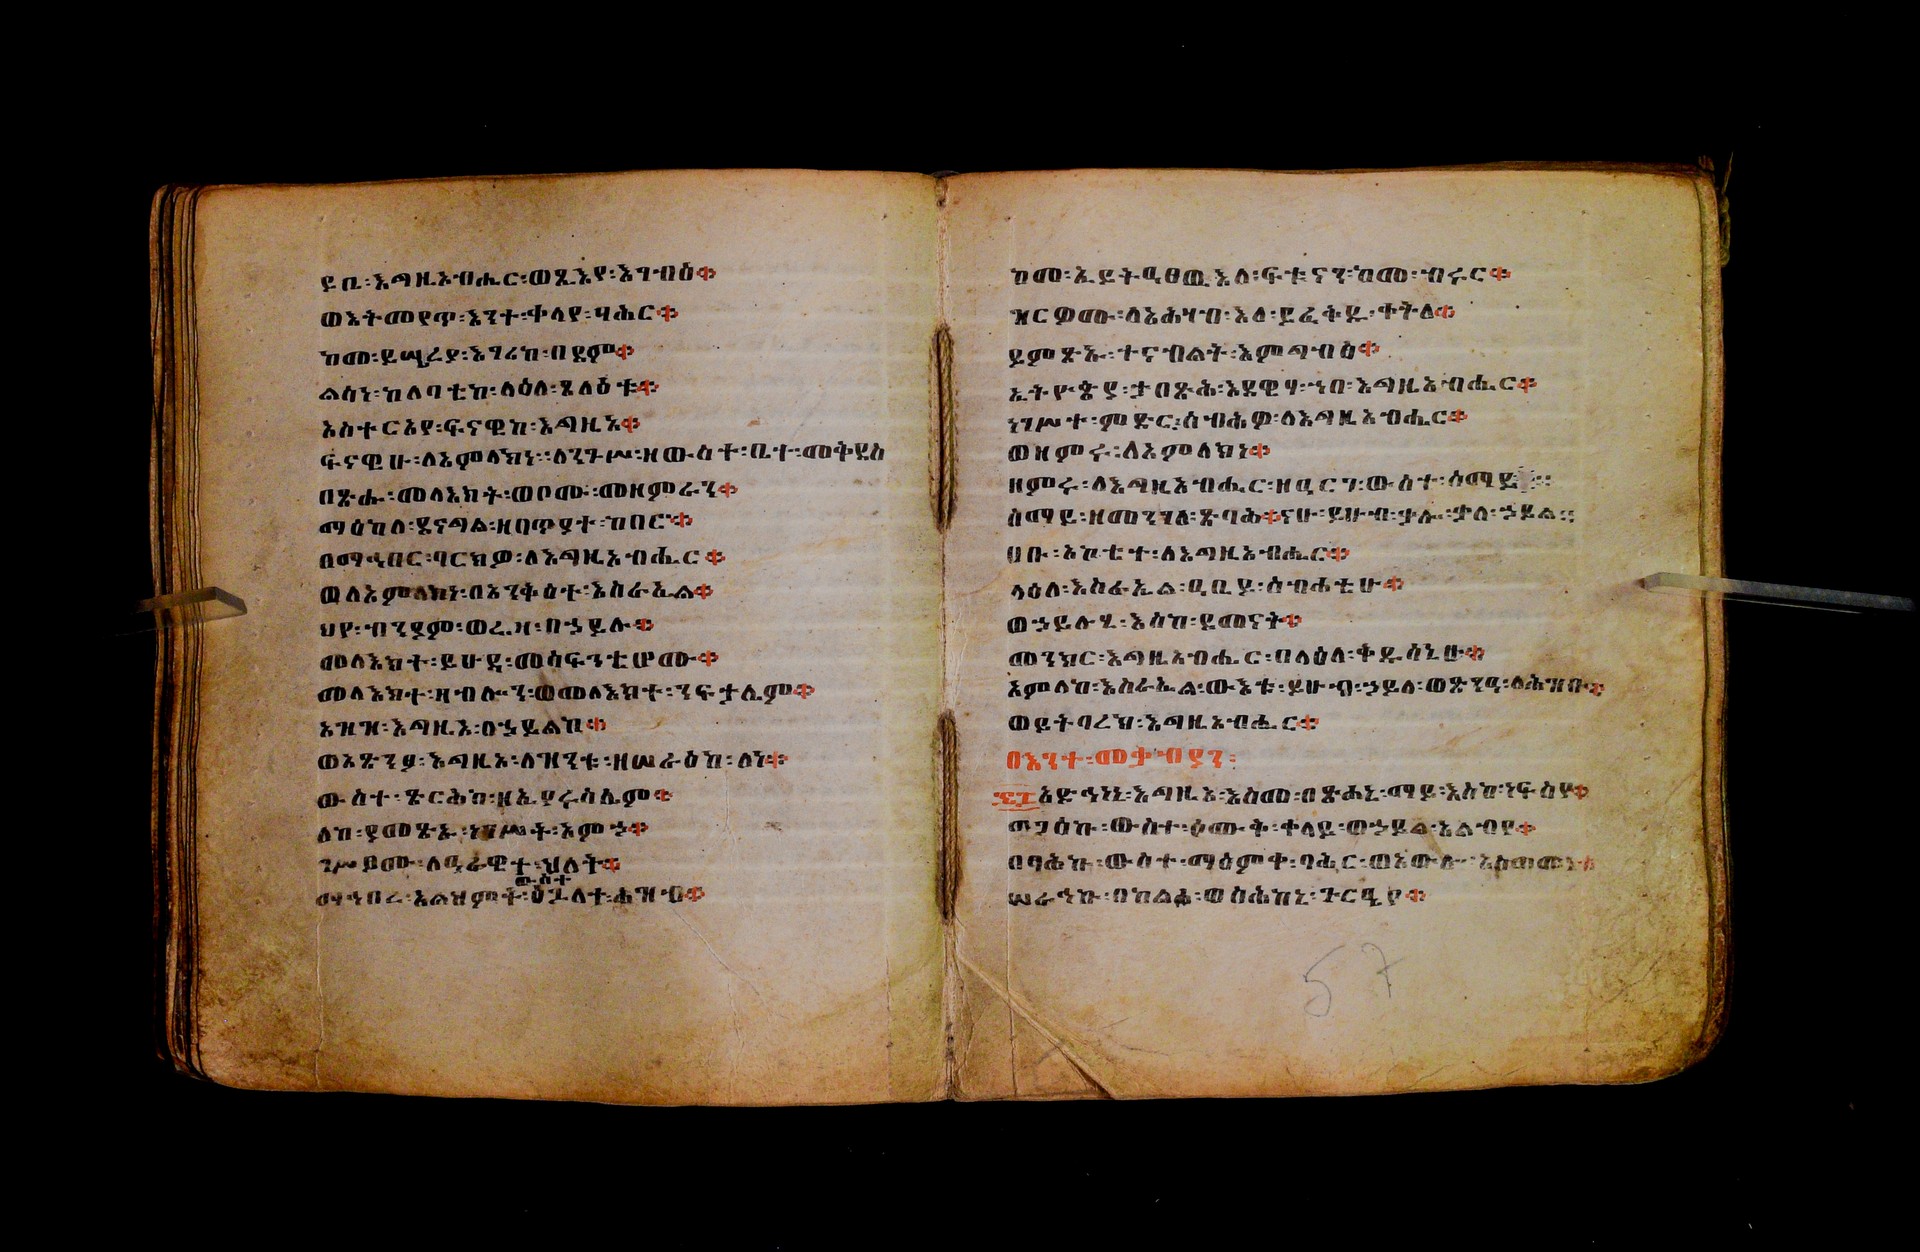 ይቤ፡እግዚአብሔር፡ወጺእየ፡እገብዕ።
ወእትመየጥ፡እንተ፡ቀላየ፡ባሕር።
ከመ፡ይሠረይ፡እግረከ፡በደም።
ልሳነ፡ከለባቲከ፡ላዕለ፡ጸላዕቱ።
አስተርአየ፡ፍናዊከ፡እግዚኦ።
ፍናዊሁ፡ለአምላክነ፡ለንጉሥ፡ዘውስተ፡ቤተ፡መቅደስ
በጽሑ፡መላእክት፡ወቦሙ፡መዘምራን።
ማዕከለ፡ደናግል፡ዘበጥያተ፡ከበር።
በማኅበር፡ባርክዎ፡ለእግዚአብሔር።
ወለአምላክነ፡በአንቅዕተ፡እስራኤል።
ህየ፡ብንያም፡ወሬዛ፡በኃይሉ።
መላእክተ፡ይሁዳ፡መሳፍንቲሆሙ።
መላእክተ፡ዛብሎን፡ወመላእክተ፡ንፍታሌም።
አዝዝ፡እግዚኦ፡በኃይልከ።
ወአጽንዖ፡እግዚኦ፡ለዝንቱ፡ዘሠራዕከ፡ለነ።
ውስተ፡ጽርሕከ፡ዘኢየሩሳሌም።
ለከ፡ያመጽኡ፡ነገሥት፡አምኃ።
ገሥጾሙ፡ለአራዊተ፡ህለት።
ውስተ
ማኅበረ፡አልህምት፡ዕጐለተ፡ሕዝብ።
ከመ፡ኢይትዐፀዉ፡እለ፡ፍቱናን፡ከመ፡ብሩር።
ዝርዎሙ፡ለአሕዛብ፡እለ፡ይፈቅዱ፡ቀትለ።
ይምጽኡ፡ተናብልት፡እምግብፅ።
ኢትዮጵያ፡ታበጽሕ፡እደዊሃ፡ኀበ፡እግዚአብሔር።
ነገሥተ፡ምድር፡ሰብሕዎ፡ለእግዚአብሔር።
ወዘምሩ፡ለአምላክነ።
ዘምሩ፡ለእግዚአብሔር፡ዘዐርገ፡ውስተ፡ሰማይ፡
ሰማይ፡ዘመንገለ፡ጽባሕ።ናሁ፡ይሁብ፡ቃሉ፡ቃለ፡ኃይል፡
ሀቡ፡አኰቴተ፡ለእግዚአብሔር።
ላዕለ፡እስራኤል፡ዐቢይ፡ስብሐቲሁ።
ወኃይሉሂ፡እስከ፡ደመናት።
መንክር፡እግዚአብሔር፡በላዕለ፡ቅዱሳኒሁ።
አምላከ፡እስራኤል፡ውእቱ፡ይሁብ፡ኃይለ፡ወጽንዐ፡ለሕዝቡ።
ወይትባረክ፡እግዚአብሔር።
በእንተ፡መቃብያን፡
፷፰አድኅነኒ፡እግዚኦ፡እስመ፡በጽሐኒ፡ማይ፡እስከ፡ነፍስየ።
ወኃይል፡አልብየ።
በጻሕኩ፡ውስተ፡ማዕምቀ፡ባሕር፡
ሠራኅኩ፡በከልሖ፡ወስሕከኒ፡ጉርዔየ።
57